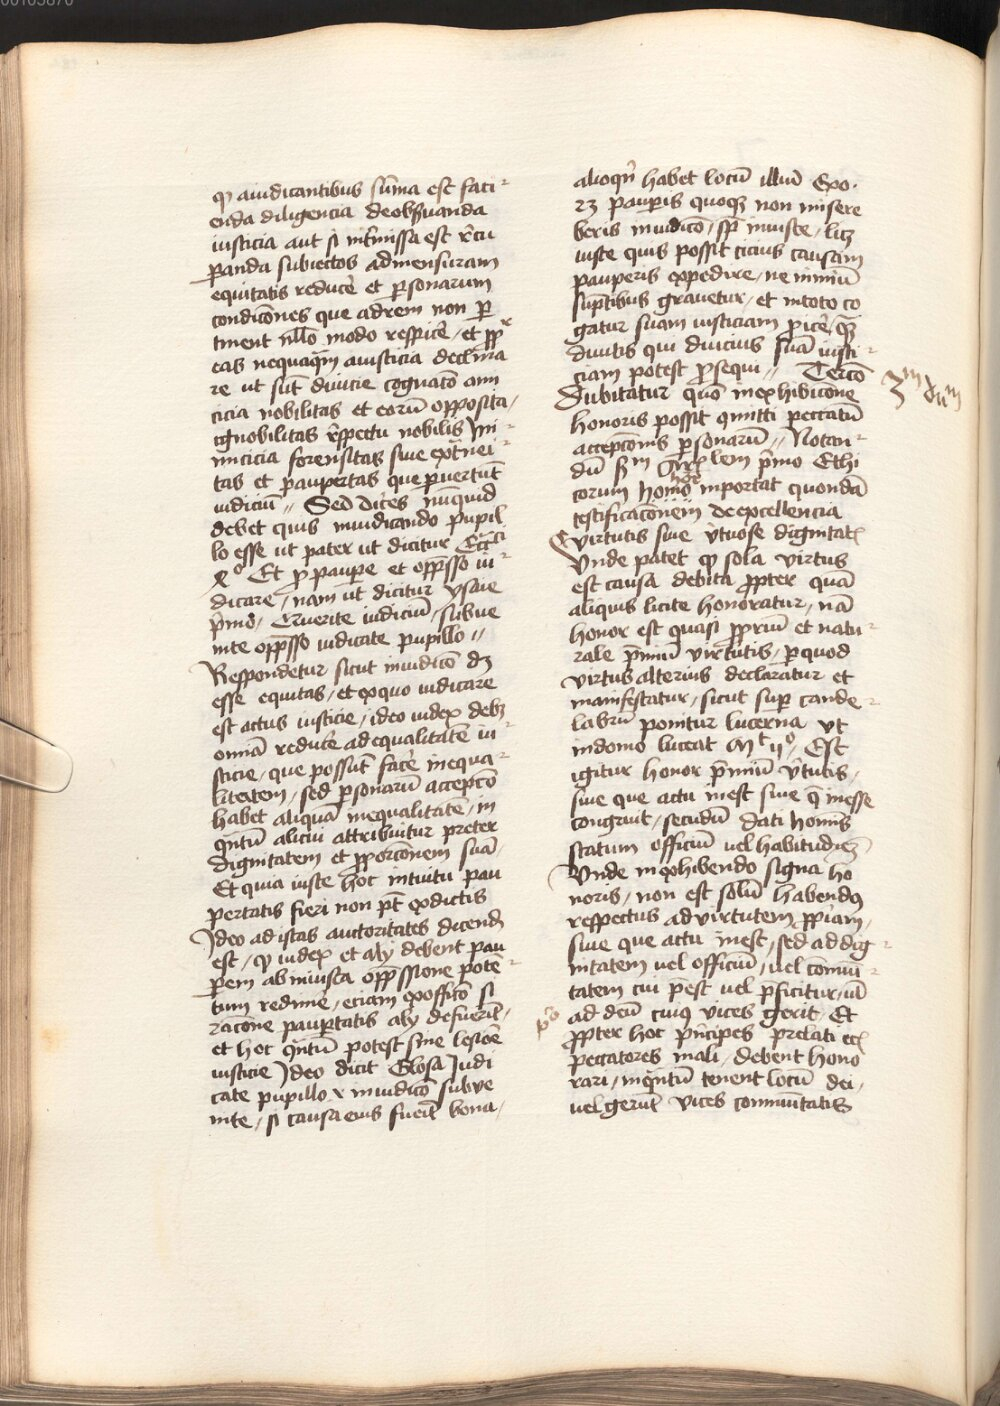 qͥ aiudicantibus su̅ma est faci-
enda diligencia deobs̉uanda
iusticia aut si int̉missa est r̉cu
ꝑanda subiectos admensuram
equitatis reducẻ et ꝑsonarum
condico̅nes que adrem non ꝑ
tinent nll̅o modo respicẻ, et ꝓpͬ
eas nequaqͣm aiusticia declina
re ut sūt diuicie cognato̅ ami
cicia nobilitas et eorū opposita,
ignobilitas r̉spectu nobilis Ini-
micicia forensitas siue ext̉nei-
tas et ꝑaupertas que ꝑuertūt
iudiciū,, Sed dices nu̅quid
debet quis iniudicando pupil
lo esse ut pater ut dicitur Eccͨⁱ
Et ꝓ paupẻ et opp̅sso iu-
dicare, nam ut dicitur ysaie
p̉mo, Querite iudiciū, subue
nite opp̅sso iudicate pupillo,,
Respondetur sicut iniudico̅ dꝫ
esse equitas, et exquo iudicare
est actus iusticie, ideo iudex debꝫ
omnia̅ reducẻ adequalitate̅ iu-
sticie, que possūt facẻ inequa-
litatem, sed ꝑsonarū accepco̅
habet aliqua̅ inequalitate̅, in
qͣntū alicui attribuitur preter
dignitatem et ꝓporco̅nem sua̅,
Et quia iuste hoc intuitu pau
pertatis fieri non pt̅ exdictis
Ideo ad istas auctoritates dicend̅
est, qͥ iudex et alij debent pau
ꝑem ab iniusta opp̅ssione pote̅-
tum redimẻ, eciam exofficio̅ si
racio̅ne pauꝑtatis alij defuerīt,
et hoc qͣntū potest sine lesio̅e
iusticie Ideo dicit Glosa Iudi
cate pupillo ⁊ iniudico̅ subue
nite, si causa eius fuerīt bona,
alioqͥn habet locū illud Exo.
pauꝑis quoqꝫ non misere
beris iniudico̅, sꝫ iniuste, licꝫ
iuste quis possit cicius causam
pauperis expedire, ne nimiū
sūptibus grauetur, et intoto co
gatur suam iusticiam ꝓicẻ, qͣꝫ
diuitis qui diucius sua̅ iusti-
ciam potest ꝓsequi,, Tercio̅
Dubitatur quo̅ inexhibicio̅ne
honoris possit co̅mitti peccatū
accepco̅nis ꝑsonarū,, Notan-
dū sꝫm Arͥstoͭlem p̉mo Ethi
corum honor inportat quonda̅
testificaco̅nem deexcellencia
virtutis siue v̉tuose dignitatꝭ
Vnde patet qͥ sola virtus
est causa debita ꝓpter qua̅
aliquis licite honoratur, na̅
honor est quasi ꝓpriū et natu-
rale p̅miū virtutis, ꝑ quod
virtus alterius declaratur et
manifestatur, sicut suꝑ cande-
labrū ponitur lucerna vt
indomo luceat Est
igitur honor p̅miū v̉tutis,
siue que actu inest siue q̅ inesse
congruit, secūdū dati homīs
statum officiū uel habitudīeꝫ
Vnde inexhibendo signa ho
noris, non est solū habendꝰ
respectus advirtutem ꝓpriam,
siue que actu inest, sed ad dig-
nitatem uel officiū, uel co̅mūi-
tatem cui p̅est uel p̅ficitur, ul̅
ad deū cuiꝰ vices gerit, Et
ꝓpter hoc p̉ncipes prelati ecͭ
peccatores mali, debent hono
rari, inqͣntū tenent locū dei,
uel gerūt vices commūitatis
3ᵐ dūᵐ